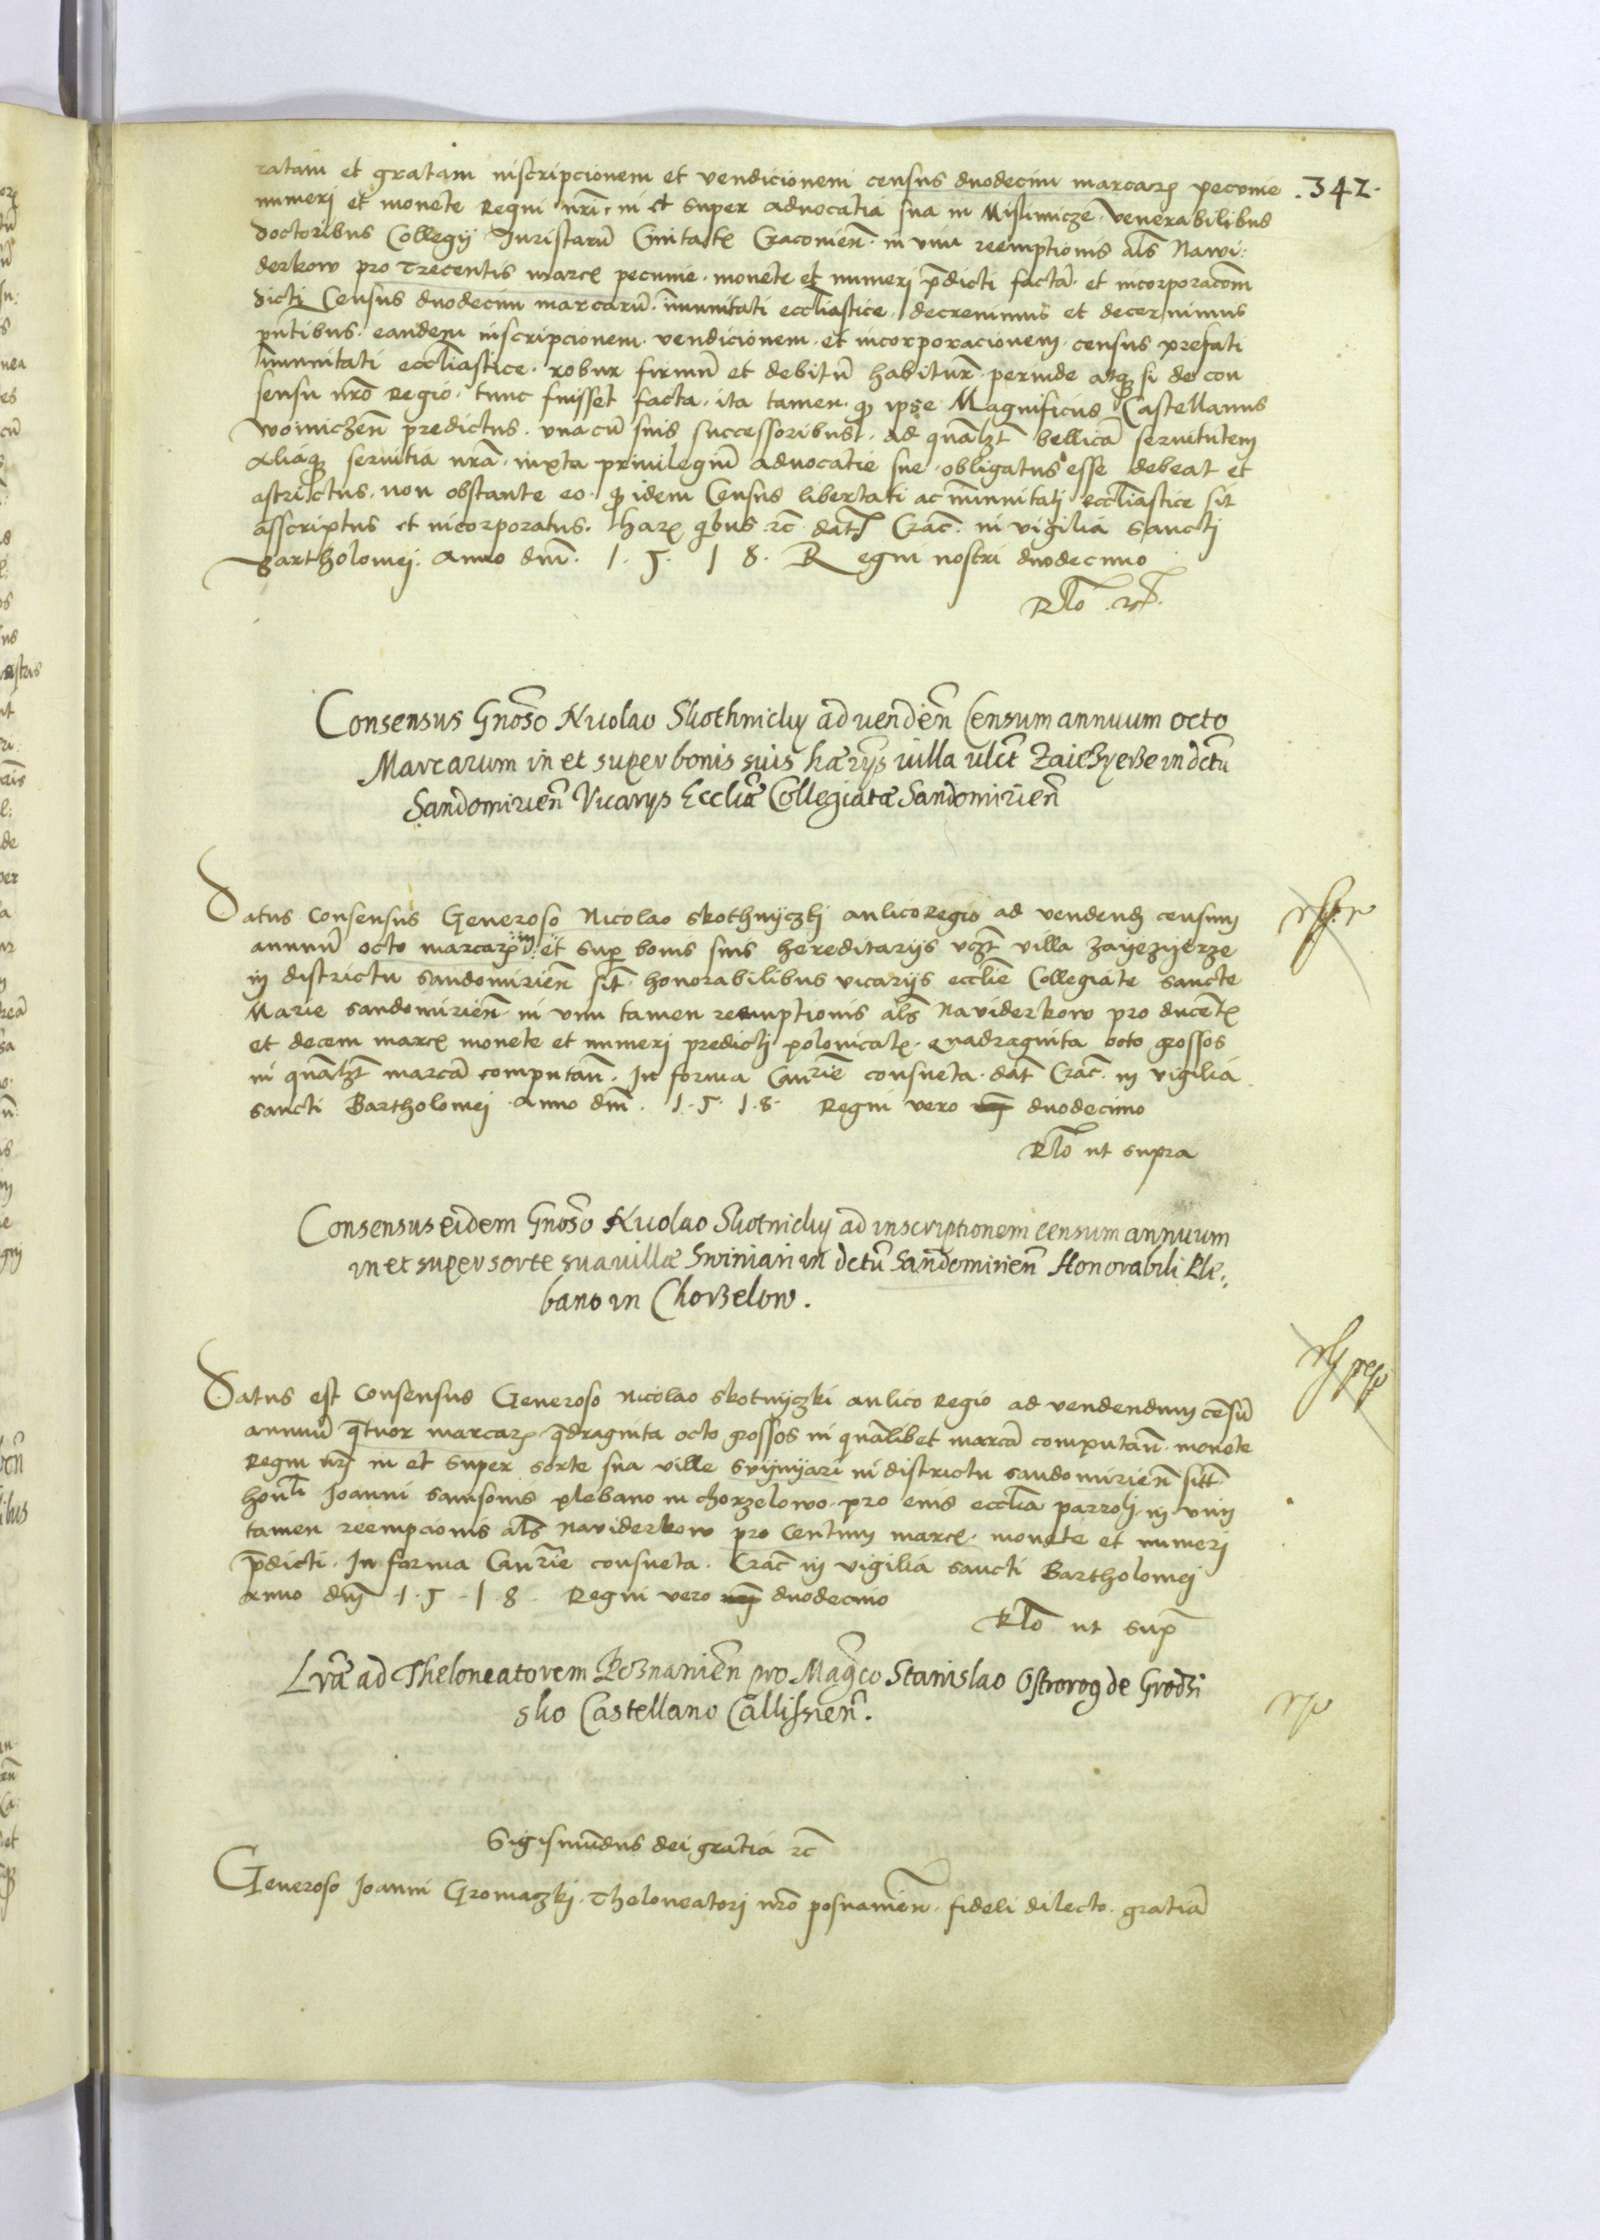 .342.
ratam et gratam inscripcionem et vendicionem census duodecim marcarz pecunie
numeri et monete Regni nri, in et super advocatia sua in Mislimicze venerabilibus
doctoribus Collegij Juristarū Civitatis Cracovien. in vim reemptionis als Nawi:
derkow pro trecentis marcz pecunie. monete et numeri pdicti factā. et incorporacōm
dicti Census duodecim marcarū. immunitati eccliastice. decrevimus et decernimus
pntibus. eandem inscripcionem. vendicionem. et incorporacionem. census prefati
immunitati eccliastice. robur firmū et debitū habiturā. perinde atq3 si de con
sensu nro Regio. tunc fuisset facta. ita tamen. q ipse Magnificus Castellanus
Woinichen predictus. una cū suis successoribus. ad quālzt bellicā servitutem
aliaq3 servitia nra. iuxta privilegiū advocatie sue. obligatus esse debeat et
astrictus. non obstante eo. q idem Census libertati ac imunitati eccliastice sit
asscriptus et incorporatus. Harz qbus rc. dat Crac. in vigilia sancti
Bartholomei. Anno dni. 1. 5. 1 8. Regni nostri duodecimo
Rlo.
Consensus Gnoso Nicolao Skothnicky ad venden Censum annuum octo
Marcarum in et super bonis suis hærijs villa vlct Zaiezyerze in dctu
Sandomirien Vicarys Eccliæ Collegiatæ Sandomirien
Datus Consensus Generoso Nicolao Skothnyczkj aulico Regio ad vendend censum
annuū octo marcarz in et sup bonis suis hereditarijs vczt villa Zayezyerze
in districtu Sandomirien sit. honorabilibus vicarijs ecclie Collegiate sancte
Marie Sandomirien in vim tamen reemptionis als Naviderkow pro ducentis
et decem marcz monete et numeri predicti polonicalz. Quadraginta octo grossos
in quālzt marcā computan. In forma Canrie consueta. dat Crac. in vigilia
sancti Bartholomei. Anno dni. 1. 5. 1. 8. Regni vero duodecimo
Rlo ut supra
Consensus eidem Gnoso Nicolao Skotnicky ad inscriptionem census annuum
in et super sorte sua villæ Swiniari in dctu Sandomirien Honorabili Ple:
bano in Chorzelow.
Datus est Consensus Generoso Nicolao Skotnyczki aulico Regio ad vendendum censū
annuū qtuor marcarz qdraginta octo grossos in quālibet marcā computan. monete
Regni nri in et super sorte sua ville Svynyari in districtu Sandomirien sitt.
honli Joanni Samsonis plebano in Chorzelowo. pro eius ecclia parroli. in vim
tamen reempcionis als Naviderkow pro Centum marcz. monete et numeri
pdicti. In forma Canrie consueta. Crac in vigilia sancti Bartholomei
Anno dni 1. 5. 1. 8. Regni vero duodecimo
Rlo ut sup
Lræ ad Theloneatorem Poznanien pro Magco Stanislao Ostrorog de Grodzi
sko Castellano Callissien.
Sigismūdus dei gratia rc
Generoso Joanni Gromaczki. Theloneatori nro posnanien. fideli dilecto. gratiā